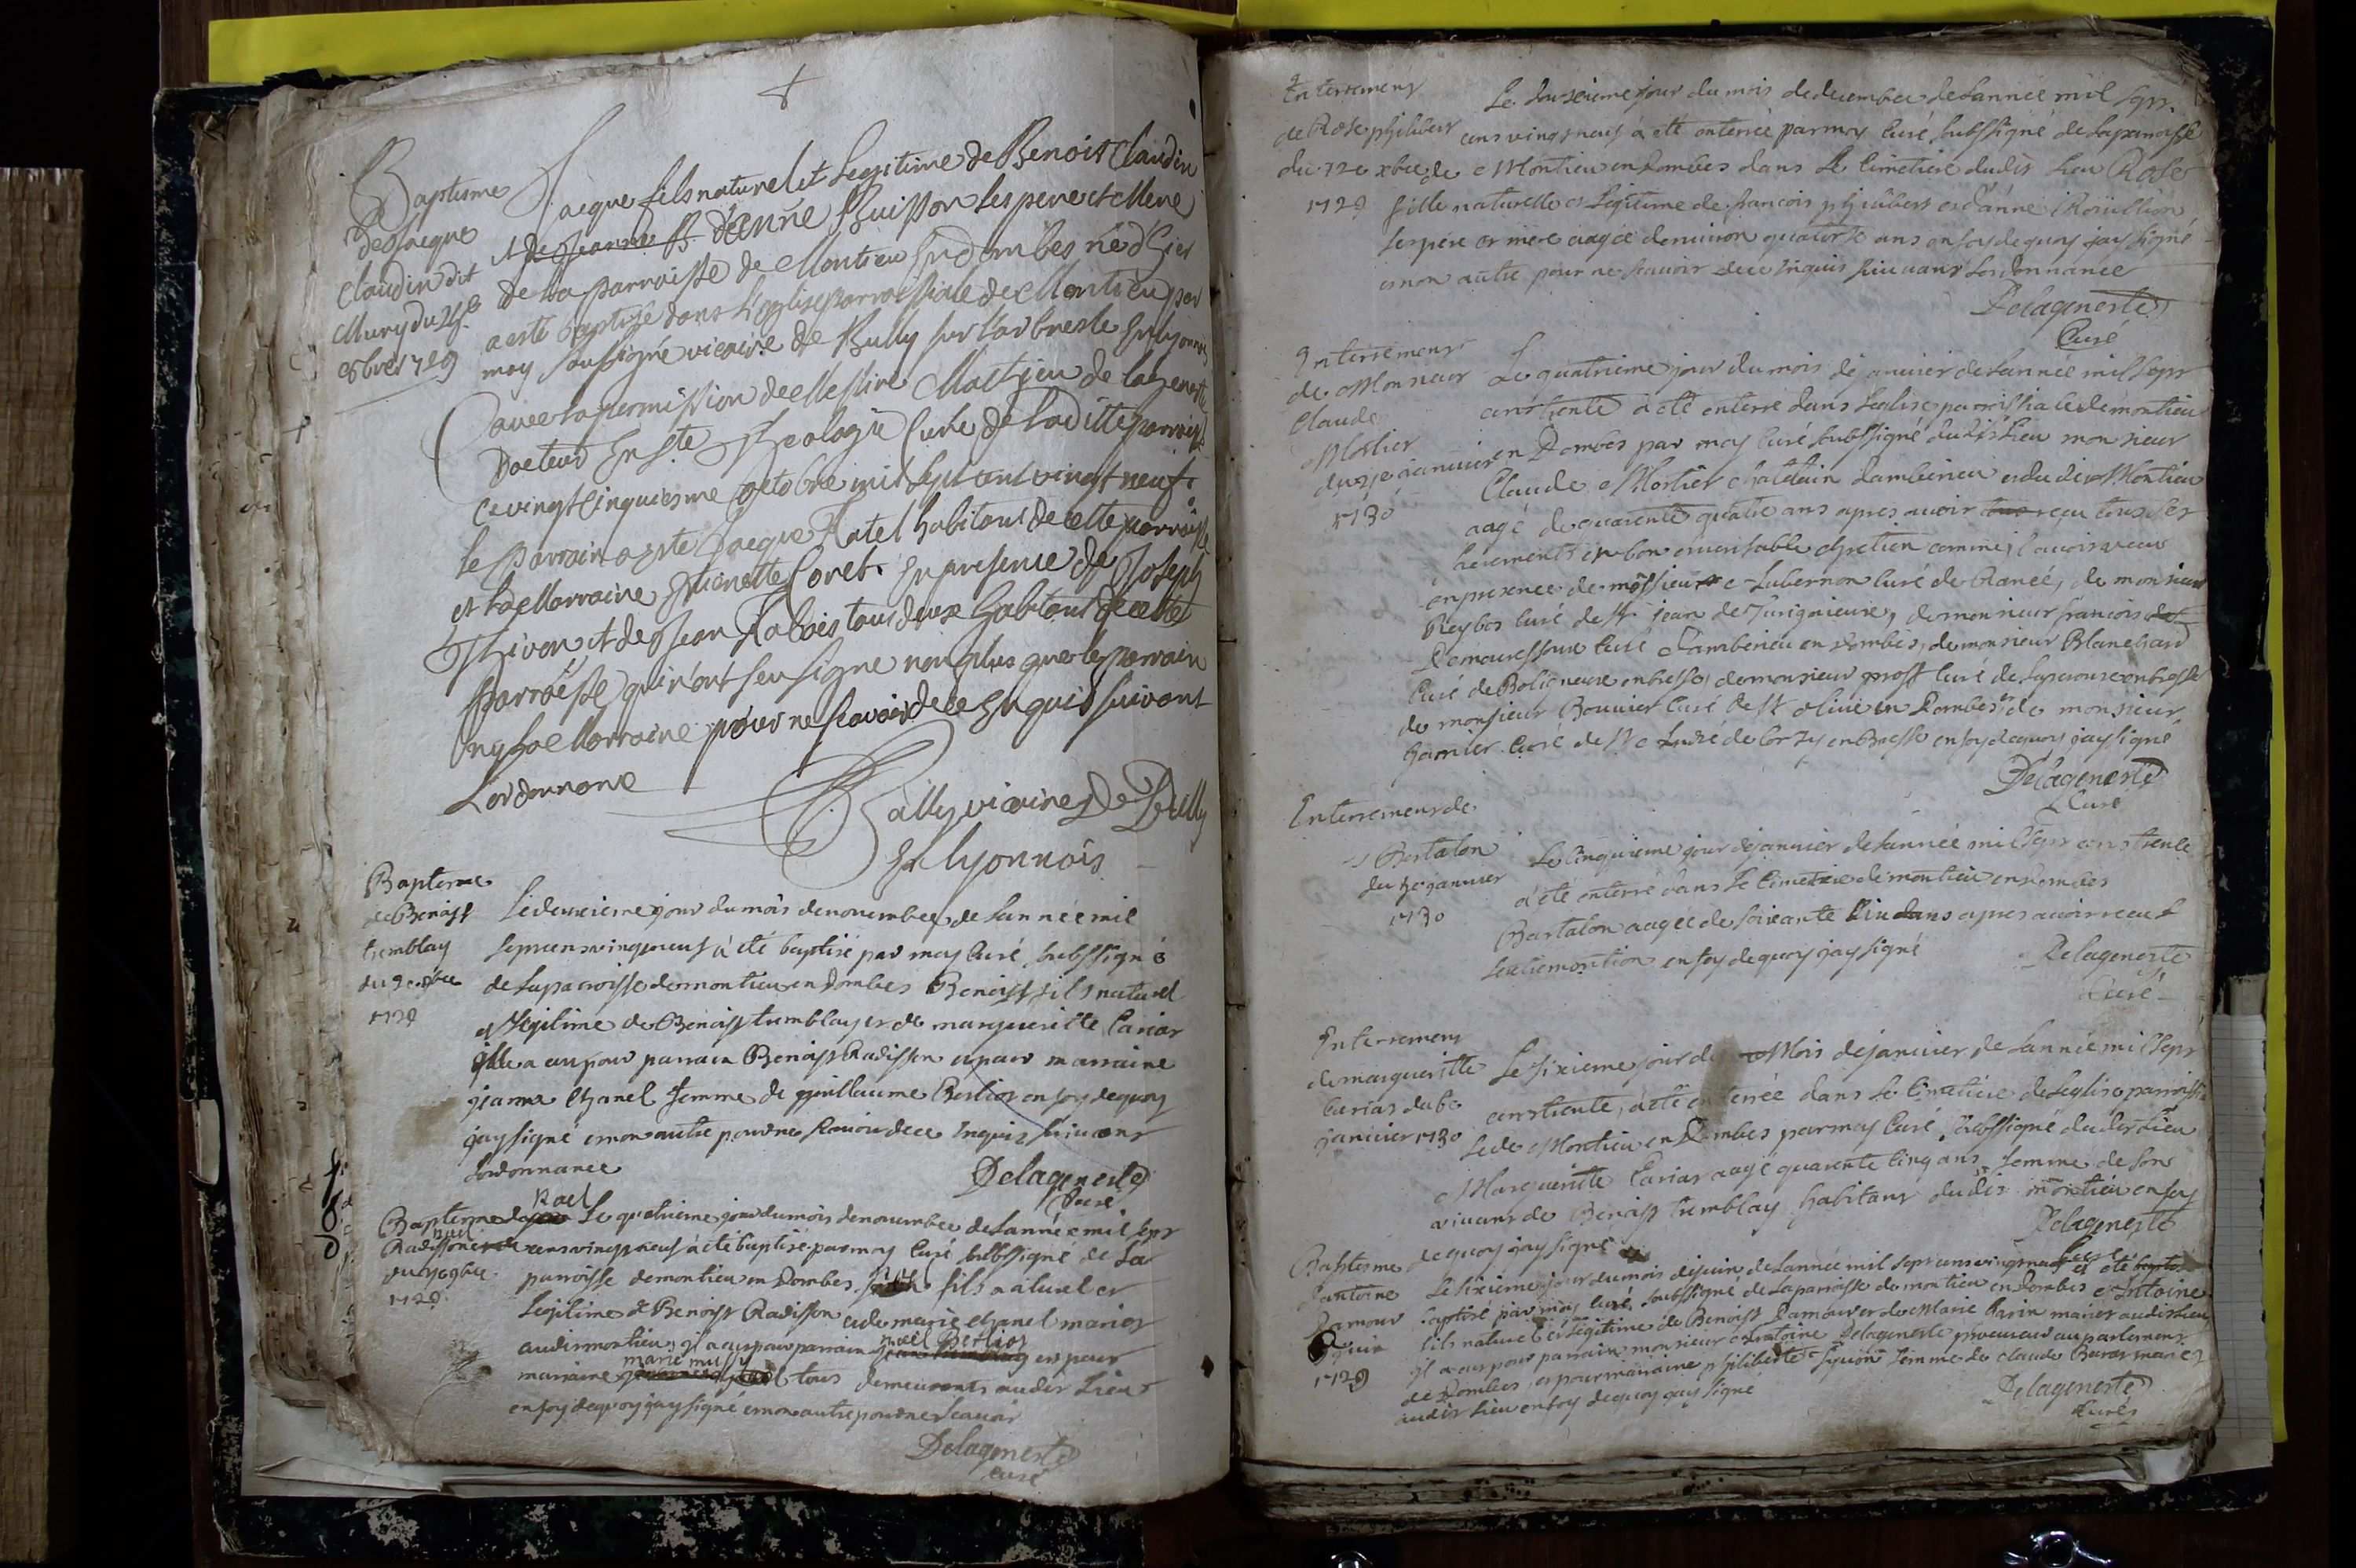 Baptisme
de Jacque
Claudin dit
Mury du 25e
8bre 1729
Jacque fils naturel et Legitime de Benoist Claudin
et de Jeanne B. d'eanne Buisson ses pere et Mere
de la parroisse de Montieu En dombes né d'hier
a esté baptisé dans L'eglise parroissiale de Montieu par
moy soussigné vicaire de Bully sur Larbresle En lyonnois
avec la permission de Messire Mathieu de lageneste
Docteur En ste Theologie Curé de laditte parroisse
ce vingt Cinquiesme octobre mil sept cent vingt neuf.
le parrain a este Jacque Ratel habitant de cette parroisse
et la Marraine Estienette Coret. En presence de Joseph
Thivon et de Jean Rabois tous deux habitants de cette
parroisse qui n'ont seu signe non plus que le parrain
ny la Marraine pour ne scavoir de ce Enquis suivant
Lordonnance
Bally vicaire De Bully
En lyonnois
Baptesme
de Benoist
tremblay
du 2e 9bre
1729
Le deuxieme jour du mois de novembre de Lannée mil
sept cens vingt neuf à été baptisé par moy Curé subssigné
de La parroisse de montieu en Dombes Benoist fils naturel
et Legitime de Benoist tremblay et de margueritte Carias
il a eu pour parrain Benoist Radisson et pour marraine
jeanne Chanel femme de guillaume Berlioz en foy de quoy
jay signé et non autre pour ne scavoir de ce Inquis suivant
Lordonnance
Delageneste
Curé
Baptesme de noel
Radisson
du 4e 9bre
1729
Le quatrieme jour du mois de novembre de Lannée mil sept
cens vingt neuf à été baptisé par moy Curé subssigné de La
parroisse de montieu en Dombes noel fils naturel et
Legitime de Benoist Radisson et de marie Chanel mariez
audit montieu, il a eu pour parrain noel Berlioz et pour
marraine marie mussy tous demeurants audit Lieu
en foy de quoy jay signé et non autre pour ne scavoir
Delageneste
curé
Enterrement
de Rose philibert
du 12e xbre
1729
Le douxieme jour du mois de decembre de Lannée mil sept
cens vingt neuf à été enterrée par moy Curé subssigné de La parroisse
de Montieu en Dombes dans Le Cimetiere dudit Lieu Rose
fille naturelle et Legitime de francois philibert et d'anne Roüillion
ses pere et mere aagée denviron quatorse ans en foy de quoy jay signé
et non autre pour ne scavoir de ce Inquis suivant Lordonnance
Delageneste
Curé
Interrement
de Monsieur
Claude
Mortier
du 4e janvier
1730
Le quatrieme jour du mois de janvier de Lannée mil sept
cens trente à été enterré dans Leglise parroissiale de montieu
en Dombes par moy Curé subssigné dudit Lieu monsieur
Claude Mortier Chatelain damberieu et dudit Montieu
aagé de quarente quatre ans apres avoir receu tous ses
sacrements en bon et veritable chretien comme il avoit vecu
en presence de monsieur Lubernon Curé de Rancé, de monsieur
Reybos Curé de st jean de Turigneux, de monsieur francois
Demouressoux Curé d'amberieu en Dombes, de monsieur Blanchard
Curé de Boligneux en bresse, de monsieur prost Curé de Laperouse en bresse
de monsieur Bouvier Curé de ste olive en Dombes de monsieur
garnier Curé de st André de Corzy en Bresse en foy de quoy jay signé
Delageneste
Curé
Enterrement de
Bertalon
du 5e janvier
1730
Le Cinquieme jour de janvier de Lannée mil sept cens trente
à été enterré dans Le Cimetiere de montieu en Dombes
Bertalon aagée de soixante apres avoir receu L
extremontion en foy de quoy jay signé
Delageneste
Curé
Enterrement
de margueritte
Carias du 6e
janvier 1730
Le sixieme jour du Mois de janvier de Lannée mil sept
cens trente, à été enterrée dans Le Cimetiere de Leglise parroissia
le de Montieu en Dombes par moy Curé subssigné dudit Lieu
Margueritte Carias aagé quarente Cinq ans femme de sons
vivant de Benoist tremblay habitant dudit montieu en foy
de quoy jay signé
Delageneste
Curé
Baptisme
dantoine
Damour
juin
1729
Le sixieme jour du mois de juin de Lannée mil sept cens vingt neuf à été
baptisé par moy Curé soubssigné de La parroisse de montieu en Dombes Antoine
fils naturel et Legitime de Benoist Damour et de Marie Carin mariez audit Lieu
il a eu pour parrain monsieur Antoine Delageneste procureur au parlement
de Dombes, et pour marraine philiberte femme de Claude mariez
audit Lieu en foy de quoy jay signé
Delageneste
Curé